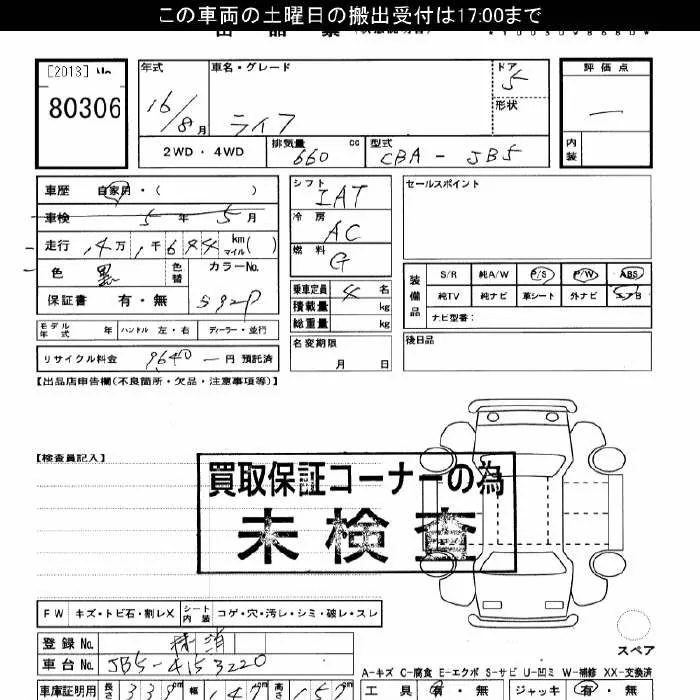 この車両の土曜日の搬出受付は17:00まで
[2013] No
80306
年式
16/8月
車名・グレード
ライフ
ドア
5
形状
評価点
—
内装
2WD・4WD
排気量 660 cc
型式 CBA - JB5
車歴 自家用・( )
車検 5年 5月
走行 4万1千644 km マイル( )
色 黒 色替
カラーNo.
保証書 有・無
592P
モデル年式 年 ハンドル 左・右 ディーラー・並行
リサイクル料金 9640 円 預託済
シフト IAT
冷房 AC
燃料 G
乗車定員 4 名
積載量 kg
総重量 kg
名変期限
月 日
セールスポイント
装備品
S/R 純A/W P/S P/W ABS
純TV 純ナビ 革シート 外ナビ エアB
ナビ型番:
後日品
【出品店申告欄(不良箇所・欠品・注意事項等)】
【検査員記入】
買取保証コーナーの為
未検査
FW キズ・トビ石・割レX シート内装 コゲ・穴・汚レ・シミ・破レ・スレ
スペア
登録No. 抹消
車台No. JB5-4153220
A-キズ C-腐食 E-エクボ S-サビ U-凹ミ W-補修 XX-交換済
車庫証明用 長さ 339cm 幅 147 高さ 157
工具 有・無 ジャッキ 有・無